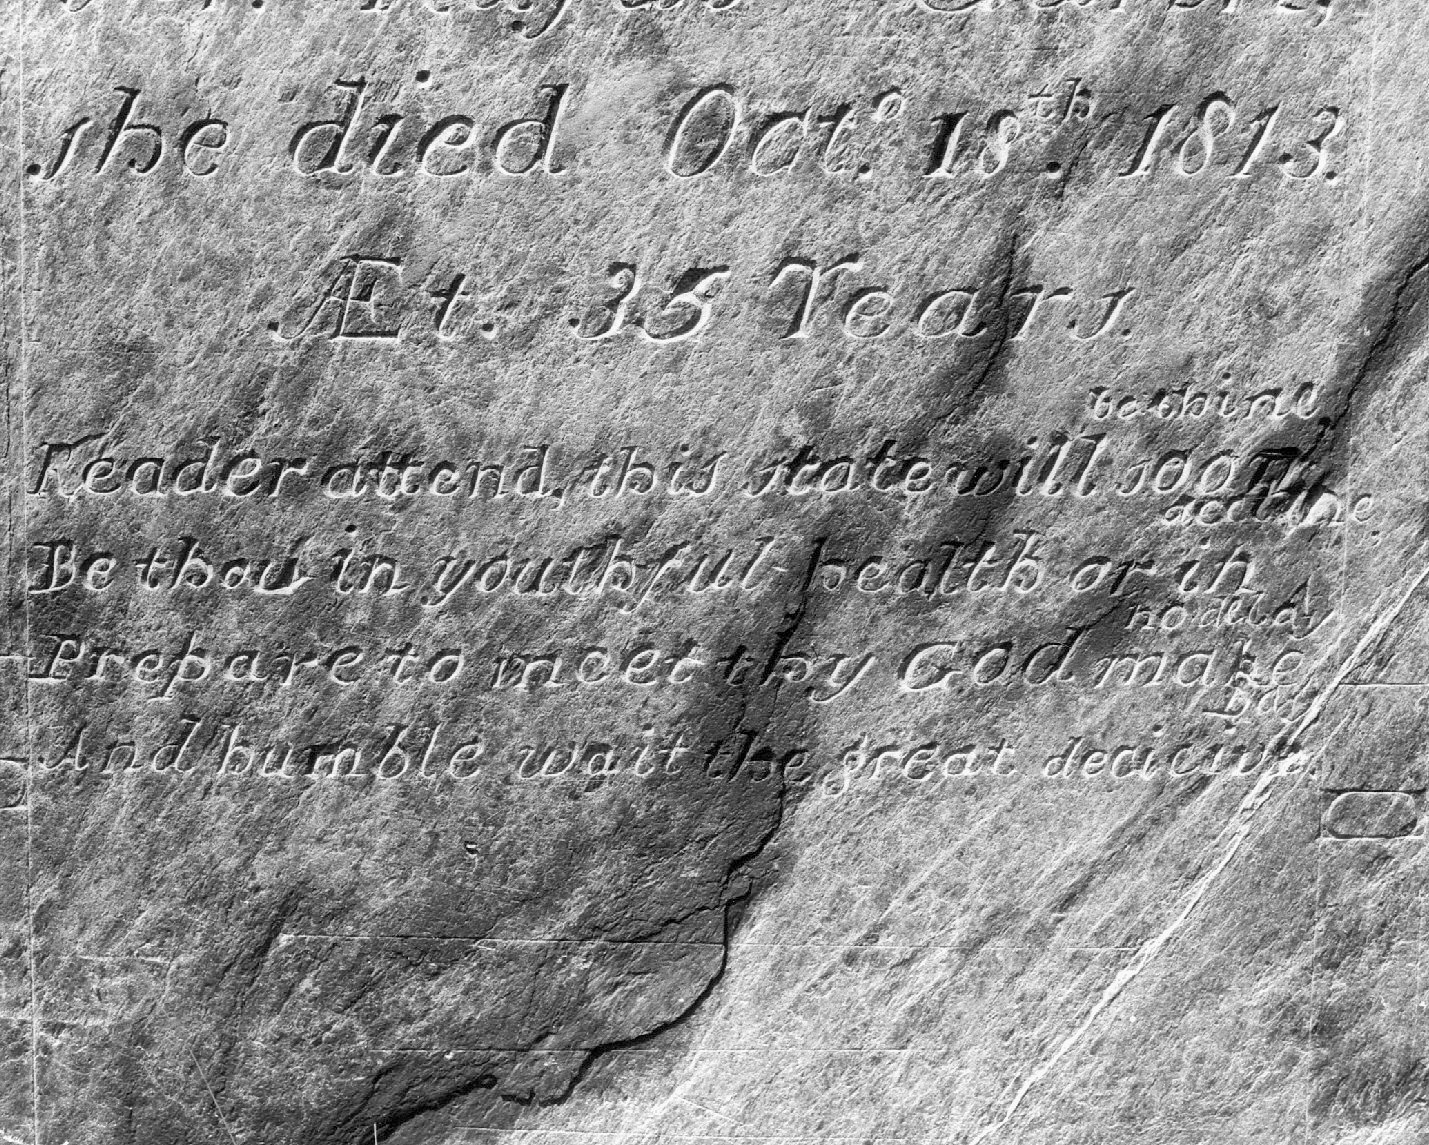 she died Oct.º 18th. 1813.
Æt. 35 Years.
be thine,
Reader attend, this state will soon
decline
Be thou in youthful-health or in
no delay
Prepare to meet thy God make
Day
And humble wait the great decicive